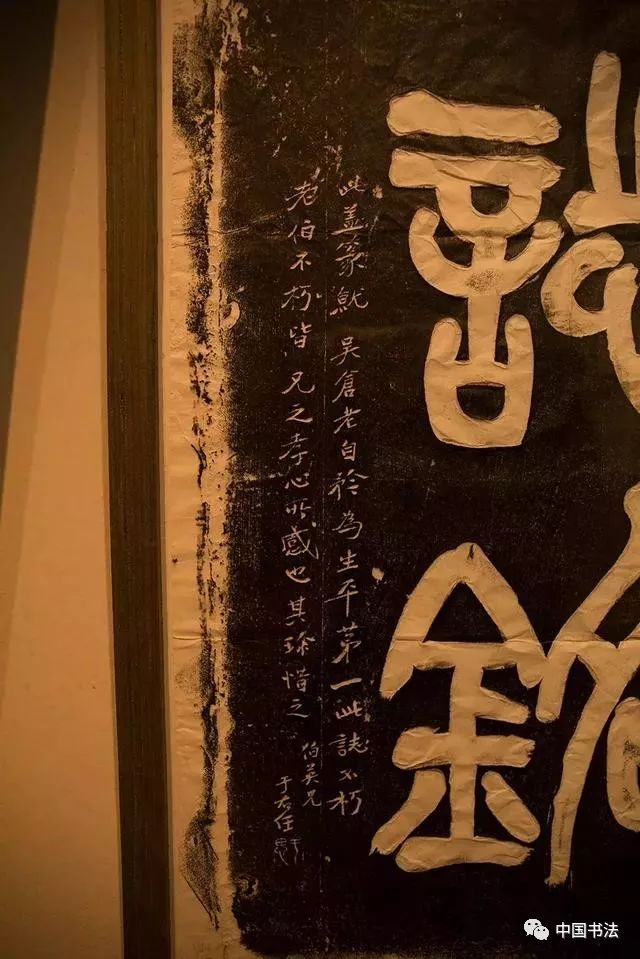 誌銘
此盖篆就 吳倉老自矜為生平第一此誌不朽
老伯不朽皆兄之孝心所感也其珍惜之
伯英兄
于右任
中国书法